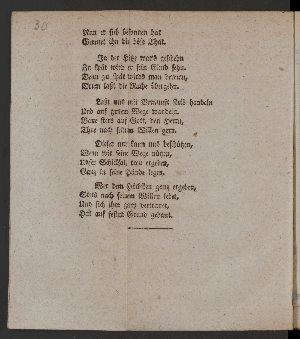 30
Nun er sich besonnen hat
Grämet ihn die böse That.
In der Hitze wars geschehn
Zu spät wird er sein Elend sehn.
Denn zu spät wirds man bereun,
Drum laßt die Rache übergehn.
Laßt uns mit Vernunft stets handeln
Und auf guten Wege wandeln.
Harr stets auf Gott, den Herrn,
Thue nach seinem Willen gern.
Dieser nur kann uns beschützen,
Wenn wir seine Wege nützen,
Unser Schicksal, treu ergeben,
Ganz in seine Hände legen.
Wer dem Höchsten ganz ergeben,
Stets nach seinem Willen lebet,
Und sich ihm ganz vertrauet,
Hat auf festen Grund gebaut.